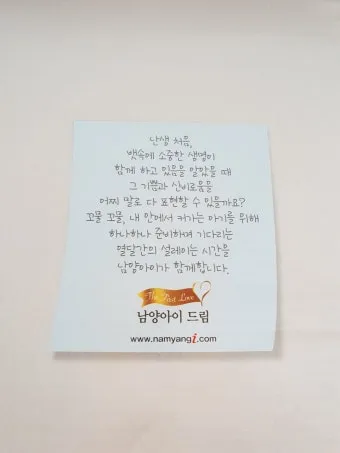 난생 처음,
뱃속에 소중한 생명이
함께 하고 있음을 알았을 때
그 기쁨과 신비로움을
어찌 말로 다 표현할 수 있을까요?
꼬물 꼬물, 내 안에서 커가는 아기를 위해
하나하나 준비하며 기다리는
열달간의 설레이는 시간을
남양아이가 함께합니다.
The First Love
남양아이 드림
www.namyangi.com